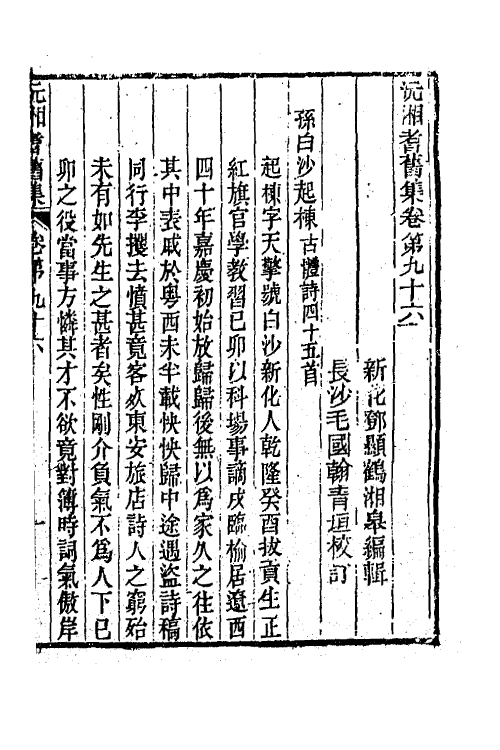 沅湘耆舊集卷第九十六
新化鄧顯鶴湘皋編輯
長沙毛國翰青垣校訂
孫白沙起棟古體詩四十五首
起棟字天擎號白沙新化人乾隆癸酉拔貢生正
紅旗官學教習己卯以科場事謫戍臨榆居遼西
四十年嘉慶初始放歸歸後無以爲家久之往依
其中表戚於粵西未半載怏怏歸中途遇盜詩稿
同行李攫去憤甚竟客死東安旅店詩人之窮殆
未有如先生之甚者矣性剛介負氣不爲人下己
卯之役當事方憐其才不欲竟對簿時詞氣傲岸
沅湘耆舊集
卷第九十六
一